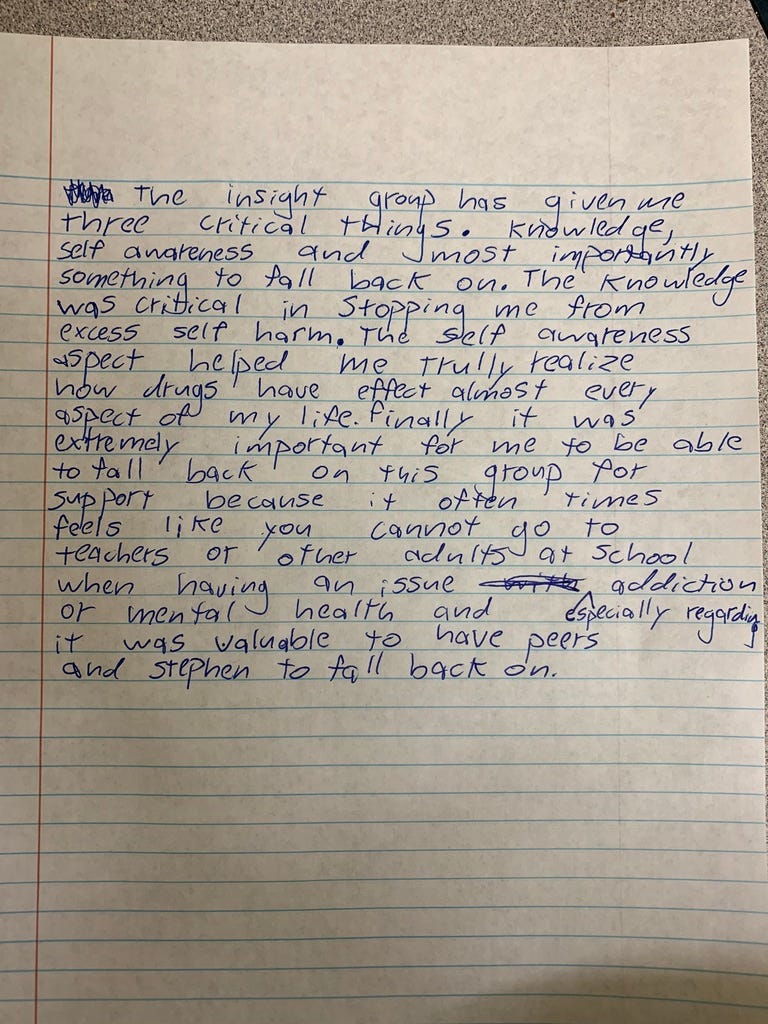 The insight group has given me
three critical things. Knowledge,
self awareness and most importantly
something to fall back on. The Knowledge
was critical in Stopping me from
excess self harm. The self awareness
aspect helped me trully realize
how drugs have effect almost every
aspect of my life. Finally it was
extremely important for me to be able
to fall back on this group for
support because it often times
feels like you cannot go to
teachers or other adults at School
when having an issue especially regarding addiction
or mental health and
it was valuable to have peers
and Stephen to fall back on.